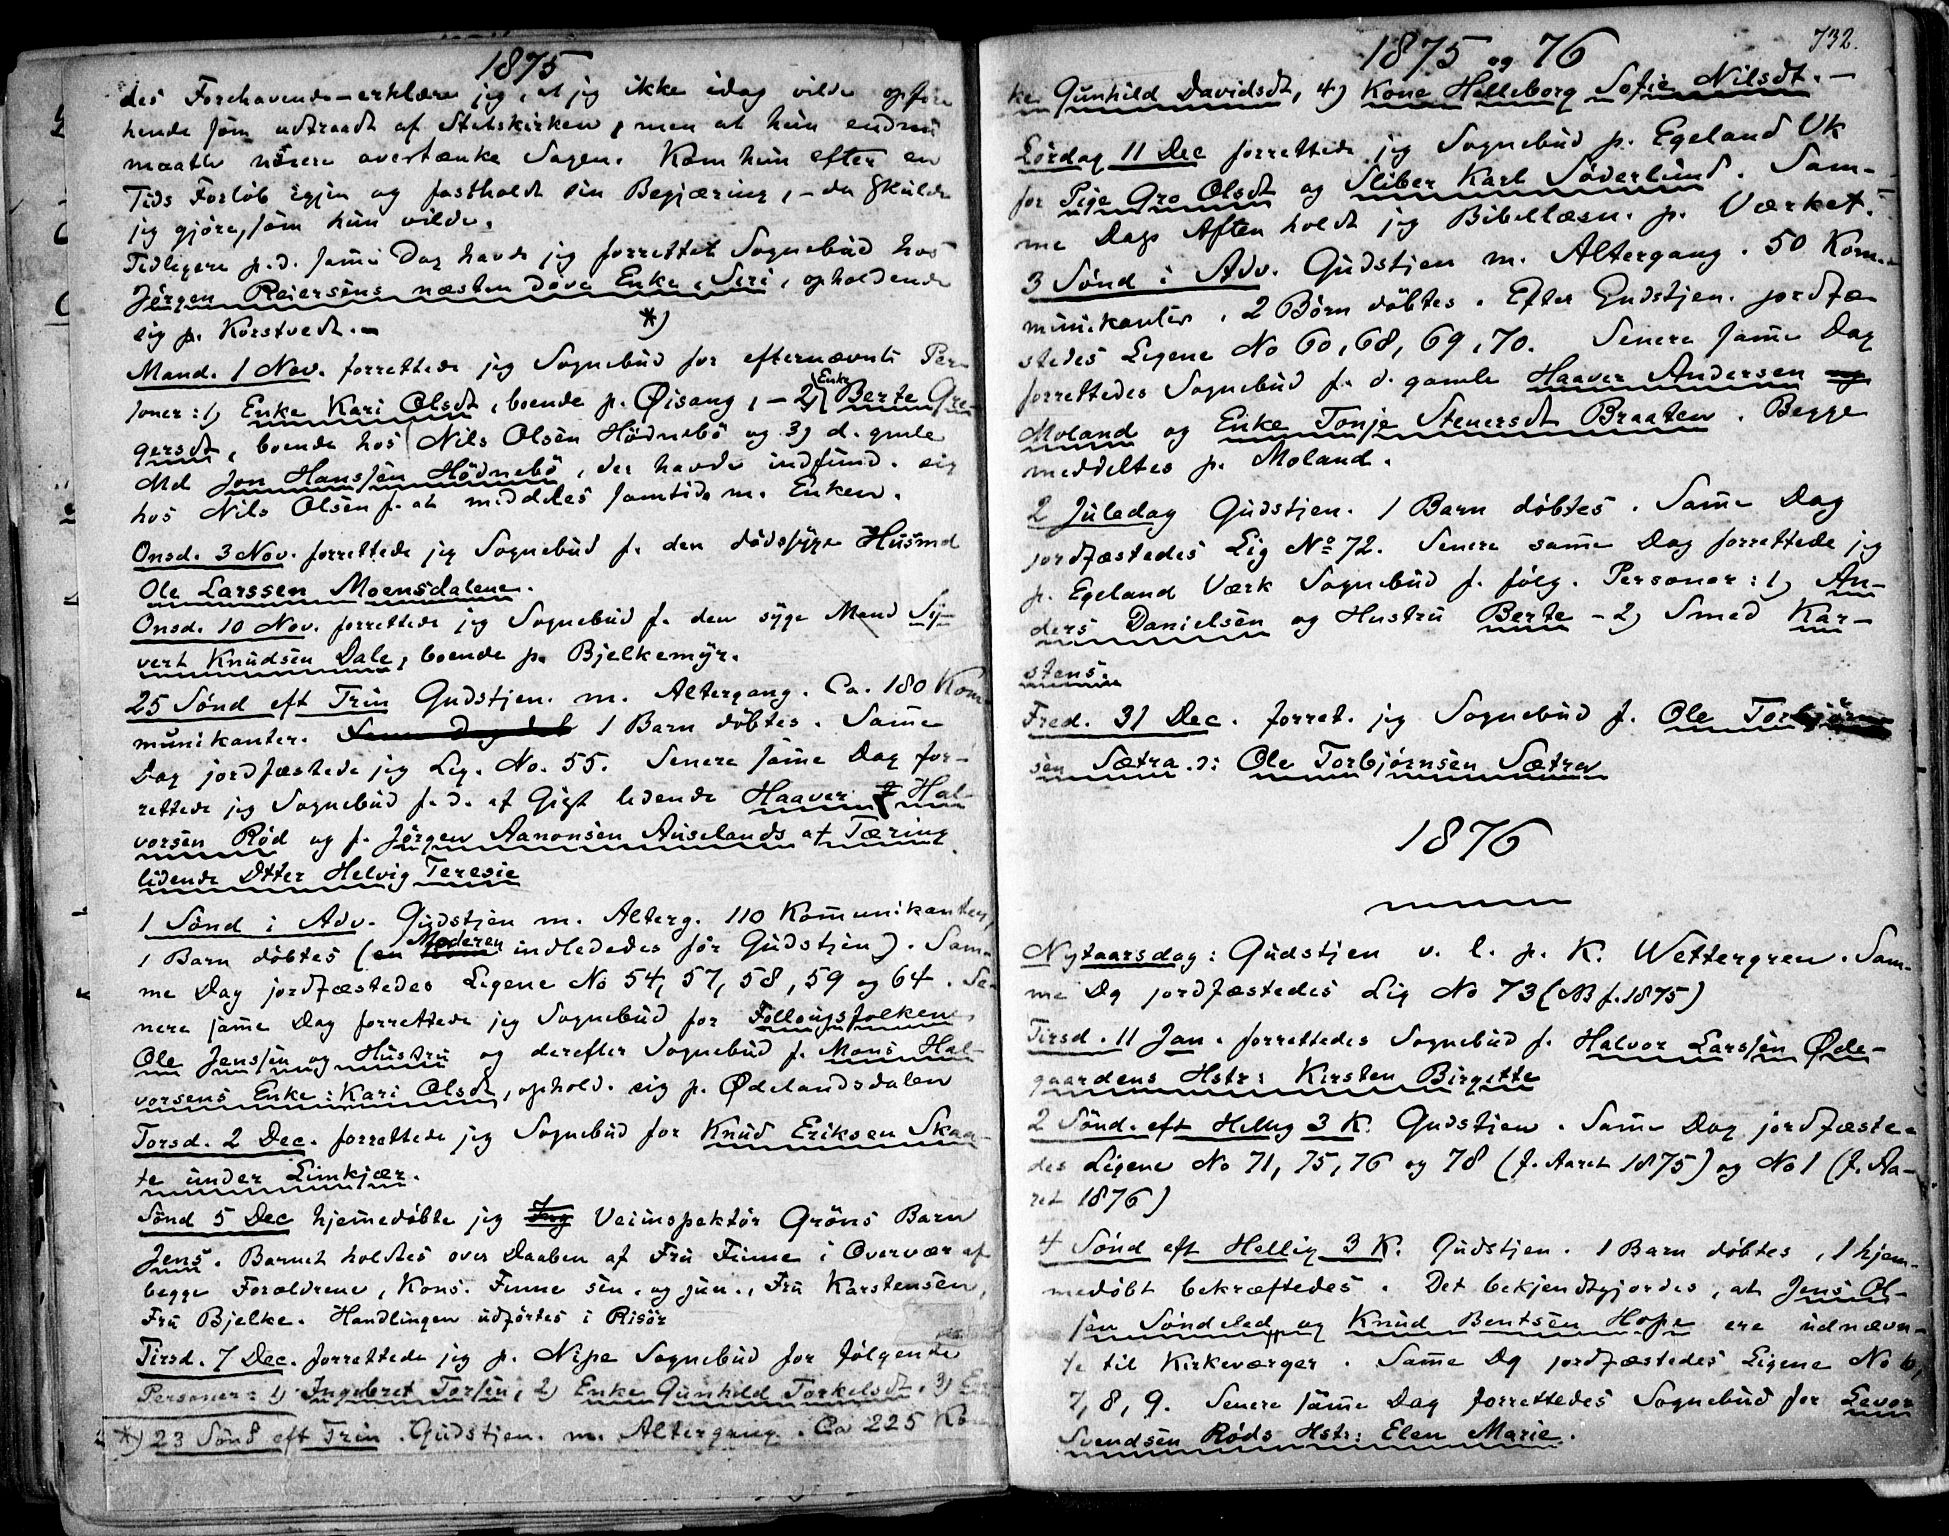 1875
des Forehavende – erklære jeg, at jeg ikke idag vilde opføre
hende som udtraadt af Statskirken, men at hun endnu
maatte nöiere overtænke Sagen. Kom hun efter en
Tids Forløb igjen og fastholdt sin Begjæring, – da skulde
jeg gjøre, som hun vilde.
Tidligere p. d. samme Dag havde jeg forrettet Sognebud hos
Jörgen Reiersens næsten døve Enke, Siri, opholdende
sig p. Korstvedt. –
*)
Mand. 1 Nov. forrettede jeg Sognebud for efternævnte Per-
soner: 1) Enke Kari Olsdt, boende p. Øisang, – 2) Enke Berte Gre-
gersdt, boende hos Nils Olsen Hödnebö og 3) d. gmle
Md Jon Hanssen Hödnebö, der havde indfund. sig
hos Nils Olsen f. at meddeles samtids m. Enken.
Onsd. 3 Nov. forrettede jeg Sognebud f. den dødssyge Husmd
Ole Larssen Moensdalene.
Onsd. 10 Nov. forrettede jeg Sognebud f. den syge Mand Sy-
vert Knudsen Dale, boende p. Bjelkemyr.
25 Sönd eft Trin Gudstjen. m. Altergang. Ca. 180 Kom-
munikanter. 1 Barn døbtes. Samme
Dag jordfæstede jeg Lig. No. 55. Senere samme Dag for-
rettede jeg Sognebud f. d. af Gigt lidende Haaver Hal-
vorsen Röd og f. Jørgen Aanonsen Auselands af Tæring
lidende Dtter Helvig Teresie
1 Sönd i Adv. Gudstjen m. Alterg. 110 Kommunikanter,
1 Barn døbtes (Moderen indledes før Gudstjen). Sam-
me Dag jordfæstedes Ligene No 54, 57, 58, 59 og 64. Se-
nere samme Dag forrettede jeg Sognebud for Follougsfolkene
Ole Jenssen og Hustru og derefter Sognebud f. Mons Hal-
vorsens Enke: Kari Olsdt, ophold. sig p. Ødelandsdalen
Torsd. 2 Dec. forrettede jeg Sognebud for Knud Eriksen Skaa-
te under Limkjær.
Sönd 5 Dec hjemmedøbte jeg Ing Veiinspektør Gröns Barn
Jens. Barnet holdtes over Daaben af Fru Finne i Overvær af
begge Forældrene, Kons. Finne sen. og jun., Fru Karstensen,
Fru Bjelke. Handlingen udførtes i Risör
Tirsd. 7 Dec. forrettede jeg p. Nipe Sognebud for følgende
Personer: 1) Ingebret Torssen, 2) Enke Gunhild Torkelsdt, 3) En-
*) 23 Sönd eft Trin. Gudstjen. m. Altergang. Ca 225 Ko
732.
1875 og 76
ke Gunhild Davidsdt, 4) Kone Helleborg Sofie Nilsdt. –
Lørdag 11 Dec forrettede jeg Sognebud p. Egeland Vk
for Pige Gro Olsdt og Sliber Karl Söderlund. Sam-
me Dags Aften holdt jeg Bibellæsn. p. Værket.
3 Sönd i Adv. Gudstjen m. Altergang. 50 Kom-
munikanter, 2 Børn döbtes. Efter Gudstjen. jordfæ-
stedes Ligene No 60, 68, 69, 70. Senere samme Dag
forrettedes Sognebud f. d. gamle Haaver Andersen og
Moland og Enke Tonje Stenersdt Braaten. Begge
meddeltes p. Moland.
2 Juledag Gudstjen. 1 Barn döbtes. Samme Dag
jordfæstedes Lig No 72. Senere samme Dag forrettede jeg
p. Egeland Værk Sognebud f. følg. Personer: 1) An-
ders Danielsen og Hustru Berte – 2) Smed Kar-
stens.
Fred. 31 Dec. forret. jeg Sognebud f. Ole Torbjörn-
sen Sætra. ɔ: Ole Torbjørnsen Sætra
1876
Nytaarsdag: Gudstjen v. l. p. K. Wettergren. Sam-
me Dg jordfæstedes Lig No 73 (NB f. 1875)
Tirsd. 11 Jan. forrettedes Sognebud f. Halvor Larssen Øde-
gaardens Hstr: Kirsten Birgitte
2 Sönd. eft Hellig 3 K. Gudstjen. Samme Dag jordfæste-
des Ligene No 71, 75, 76 og 78 (f. Aaret 1875) og No 1 (f. Aa-
ret 1876)
4 Sönd eft Hellig 3 K. Gudstjen. 1 Barn døbtes, 1 hjem-
medøbt bekræftedes. Det bekjendtgjordes, at Jens Ol-
sen Søndeled og Knud Bentsen Hope ere udnævn-
te til Kirkeværger. Samme Dg jordfæstedes Ligene No 6,
7, 8, 9. Senere samme Dag forrettedes Sognebud for Levor
Svendsen Røds Hstr: Elen Marie.